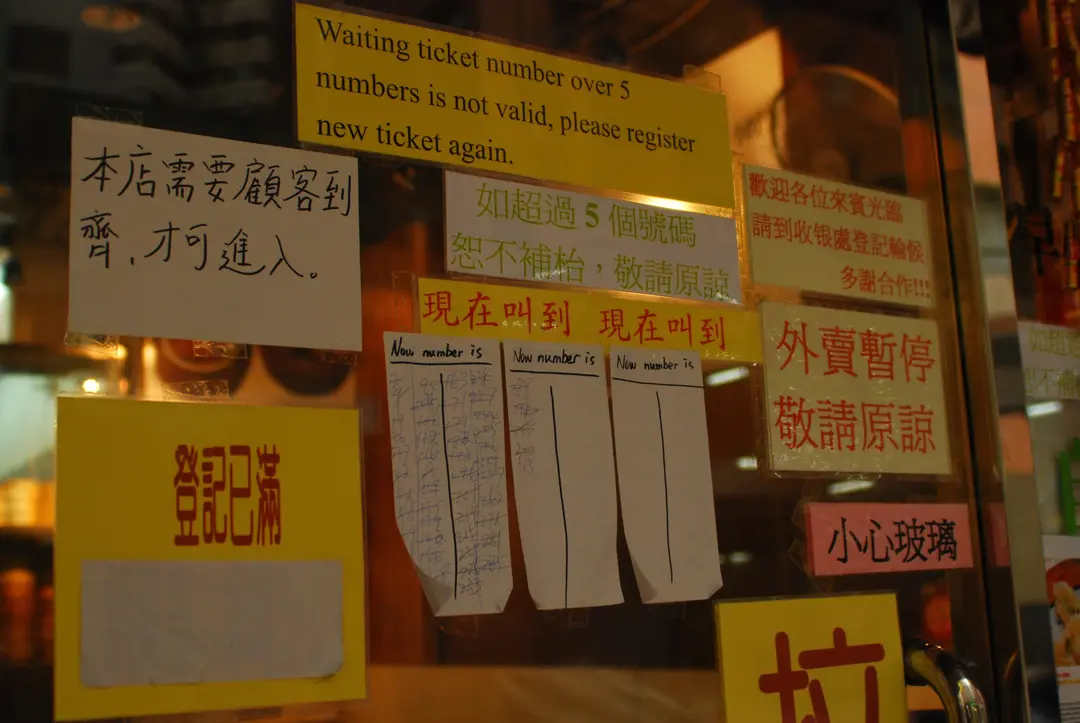 Waiting ticket number over 5
numbers is not valid, please register
new ticket again.
本店需要顧客到
齊,才可進入。
如超過 5 個號碼
恕不補枱，敬請原諒
歡迎各位來賓光臨
請到收银處登記輪候
多謝合作!!!
現在叫到 現在叫到
Now number is
Now number is
Now number is
外賣暫停
敬請原諒
登記已滿
小心玻璃
拉
如超過
恕不補